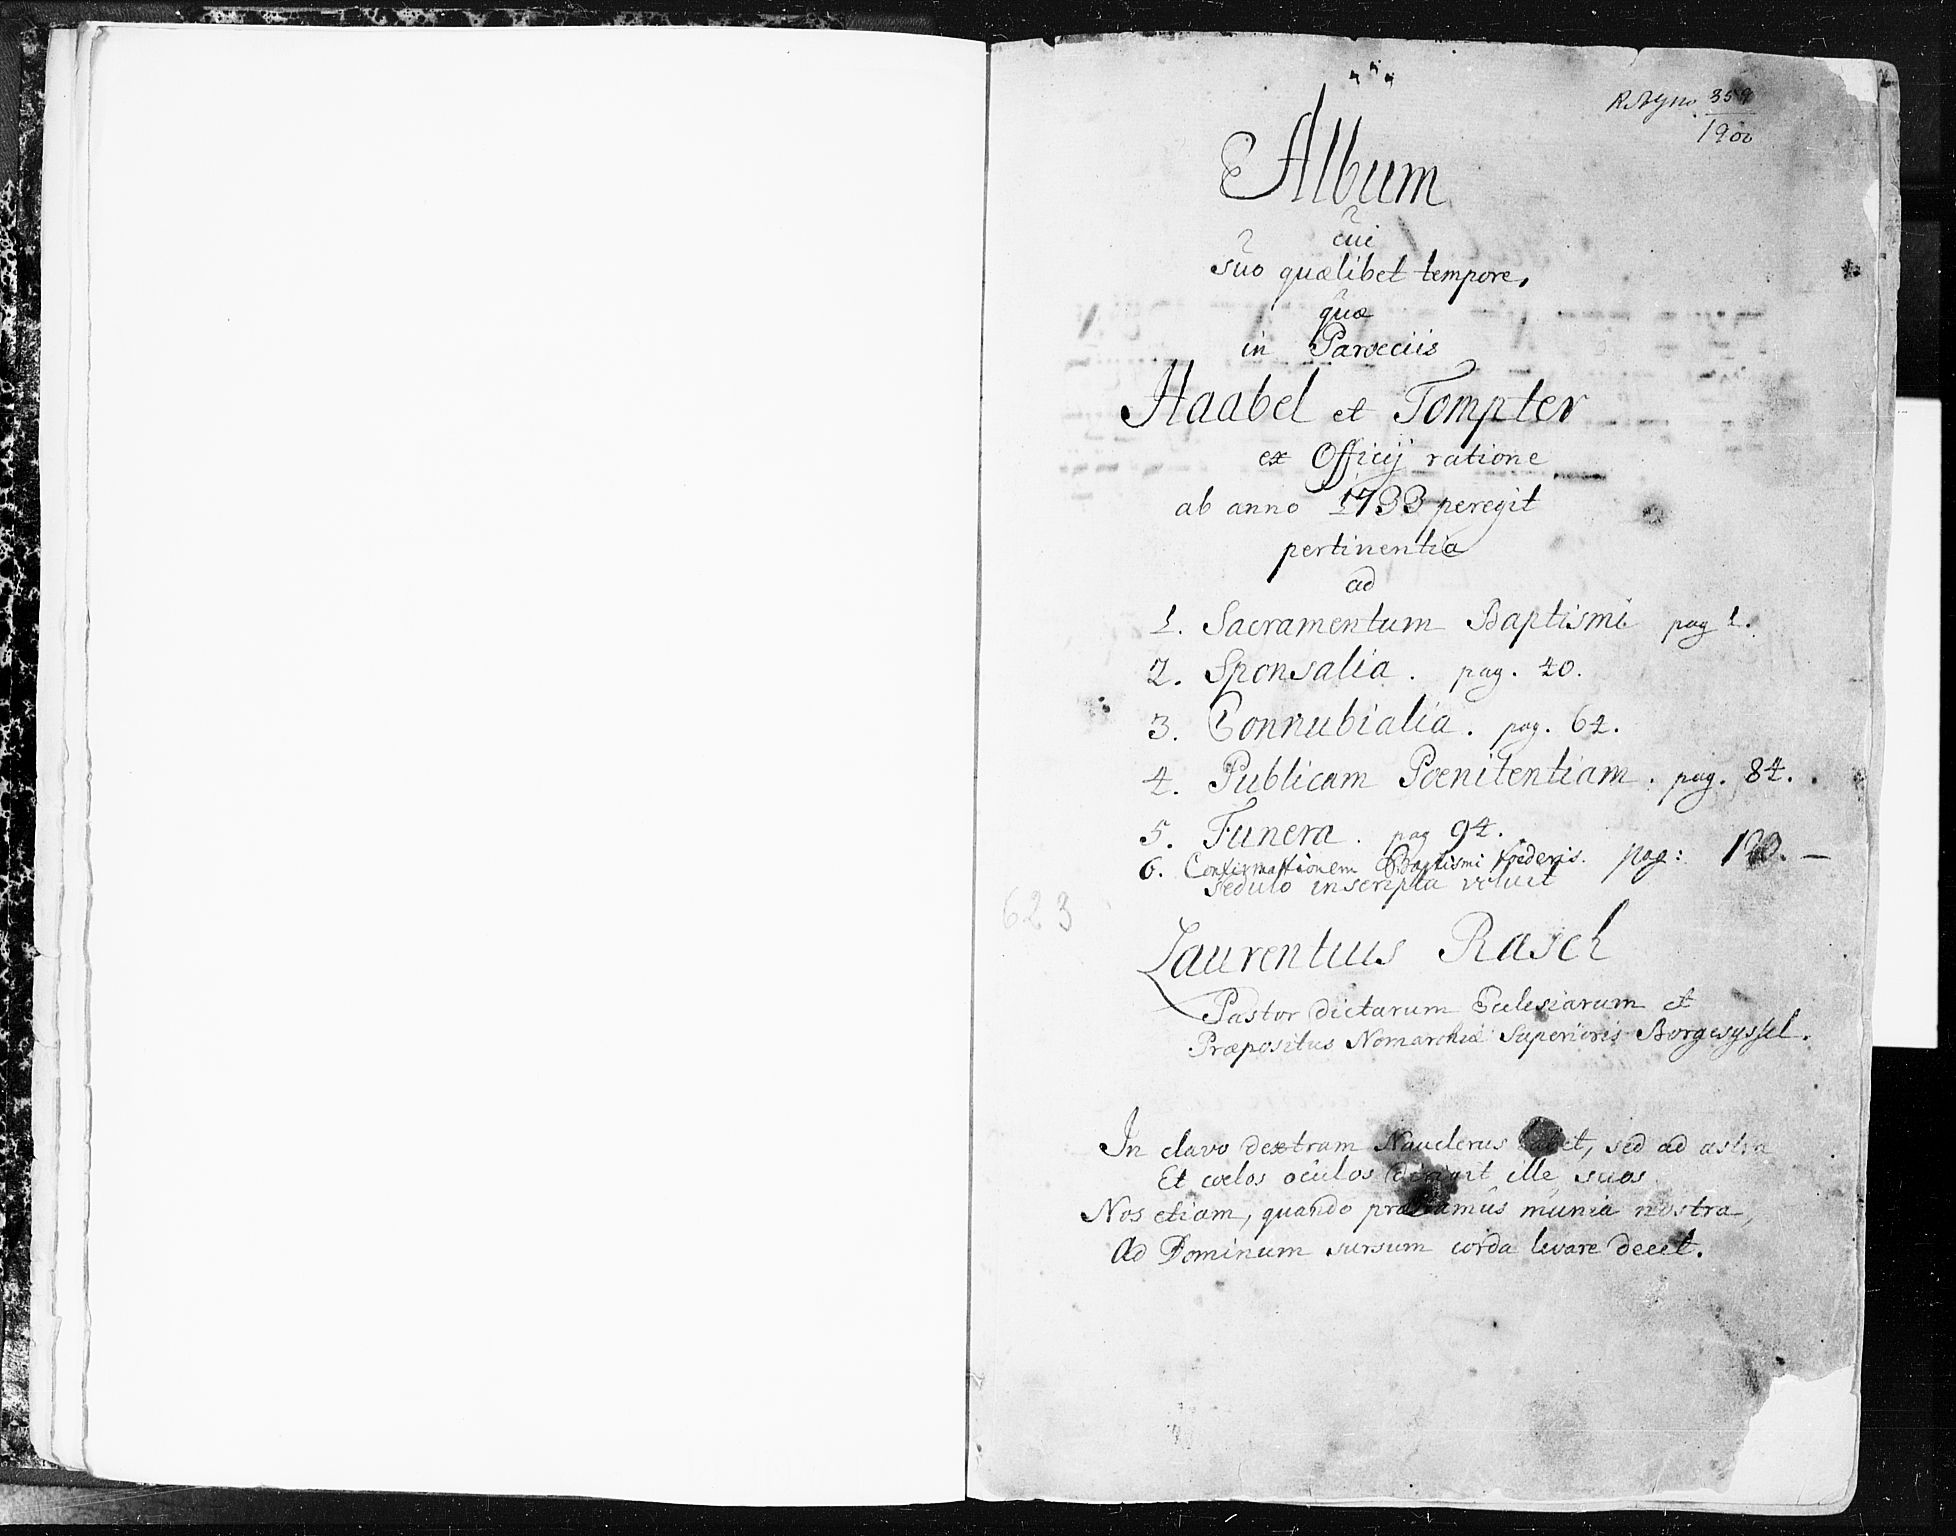 359
1900
Album
cui
suo quælibet tempore,
quæ
in Paroeciis
Haabel et Tompter
ex Officij ratione
ab anno 1733 peregit
pertinentia
ad
1. Sacramentum Baptismi pag 1.
2. Sponsalia. pag. 40.
3. Connubialia. pag. 64.
4. Publicam Poenitentiam. pag. 84.
5. Funera. pag 94.
6. Confirmationem Baptismi foederis. pag:
sedulo inscripta voluit
623
Laurentius Rasch
Pastor dictarum Eclesiarum et
Præpositus Nomarchiæ Superioris Borgesyssel.
In clavo dextram Nauclerus habet, sed ad astra
Et coelos oculos dirigit ille suos
Nos etiam, quando præstamus munia nostra,
Ad Dominum sursum corda levare decet.